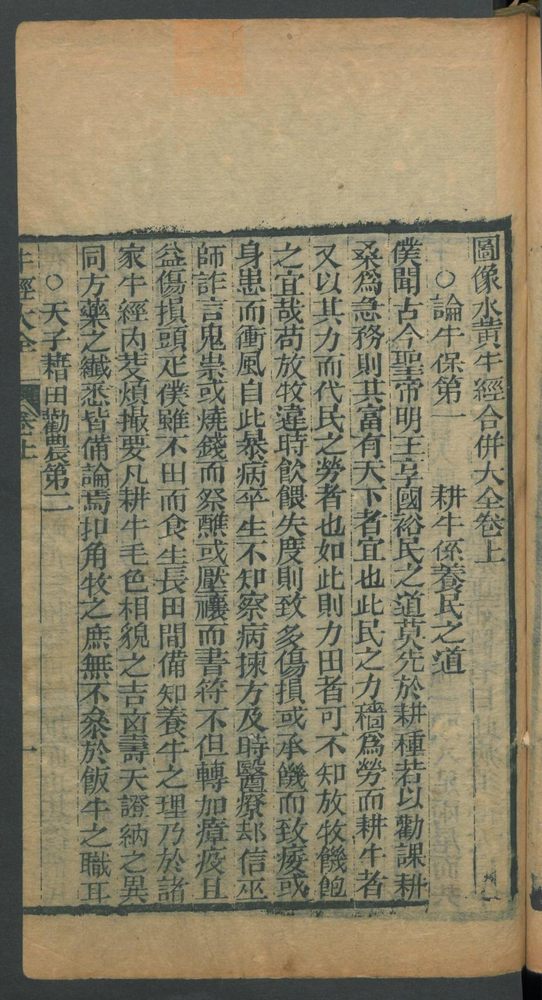 圖像水黃牛經合併大全卷上
○論牛保第一　耕牛係養民之道
僕聞古今聖帝明王享國裕民之道莫先於耕種若以勸課耕
桑爲急務則其富有天下者宜也此民之力穡爲勞而耕牛者
又以其力而代民之勞者也如此則力田者可不知放牧饑飽
之宜哉苟放牧違時飲餵失度則致多傷損或承饑而致疲或
身患而衝風自此暴病卒生不知察病揀方及時醫療却信巫
師詐言鬼祟或燒錢而祭醮或壓禳而書符不但轉加瘴疫且
益傷損頭疋僕雖不田而食生長田間備知養牛之理乃於諸
家牛經內芟煩撮要凡耕牛毛色相貌之吉凶壽夭證納之異
同方藥之纖悉皆備論焉扣角牧之庶無不叅於飯牛之職耳
○天子藉田勸農第二
牛經大全　卷上　一